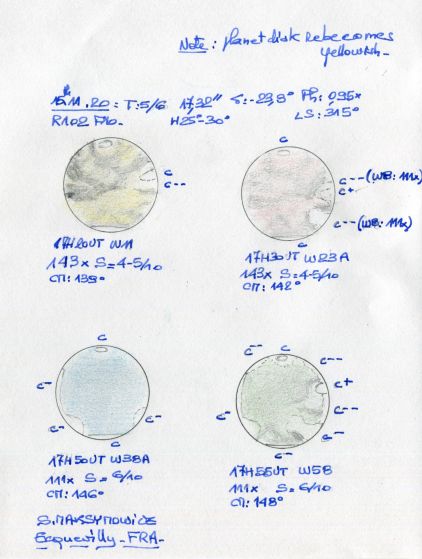 Note: planet disk rebecomes
yellowish-
15.11.20 = T:5/6 17,32" δ:-23,8° Ph: 0,95x
R102 F10. H25°-30° LS: 315°
C
C
C--
C
C--(W8: 111x)
C+
C--(W8: 111x)
C
17H20UT W11
143x S=4-5/10
CM: 139°
17H30UT W23A
143x S=4-5/10
CM: 142°
C
C-
C-
C-
C
C--
C--
C+
C-
C--
C-
C
17H50UT W38A
111x S=6/10
CM: 146°
17H55UT W58
111x S=6/10
CM: 148°
S. MAKSYMOWICZ
Ecquevilly-FRA-